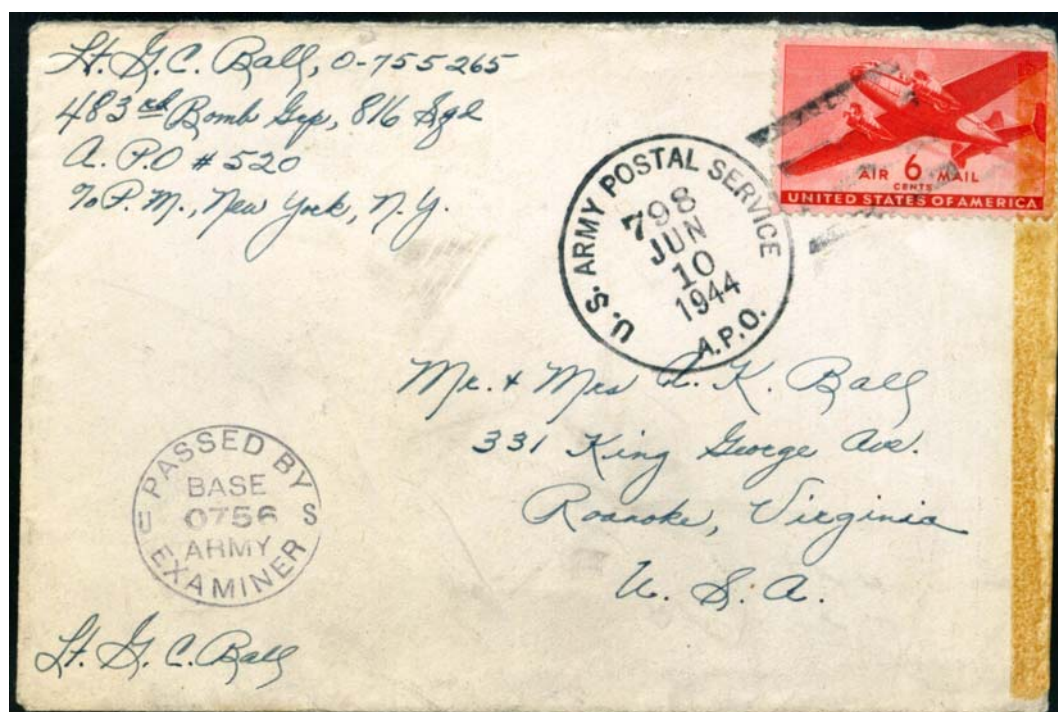 Lt. G. C. Ball, O-755265
483rd Bomb Grp, 816 Sqd
A. P.O # 520
℅ P. M., New York, N. Y.
AIR 6 MAIL
CENTS
UNITED STATES OF AMERICA
U. S. ARMY POSTAL SERVICE
798
JUN
10
1944
A.P.O.
Mr. + Mrs A. K. Ball
331 King George Ave.
Roanoke, Virginia
U. S. A.
PASSED BY
BASE
U 0756 S
ARMY
EXAMINER
Lt. G. C. Ball